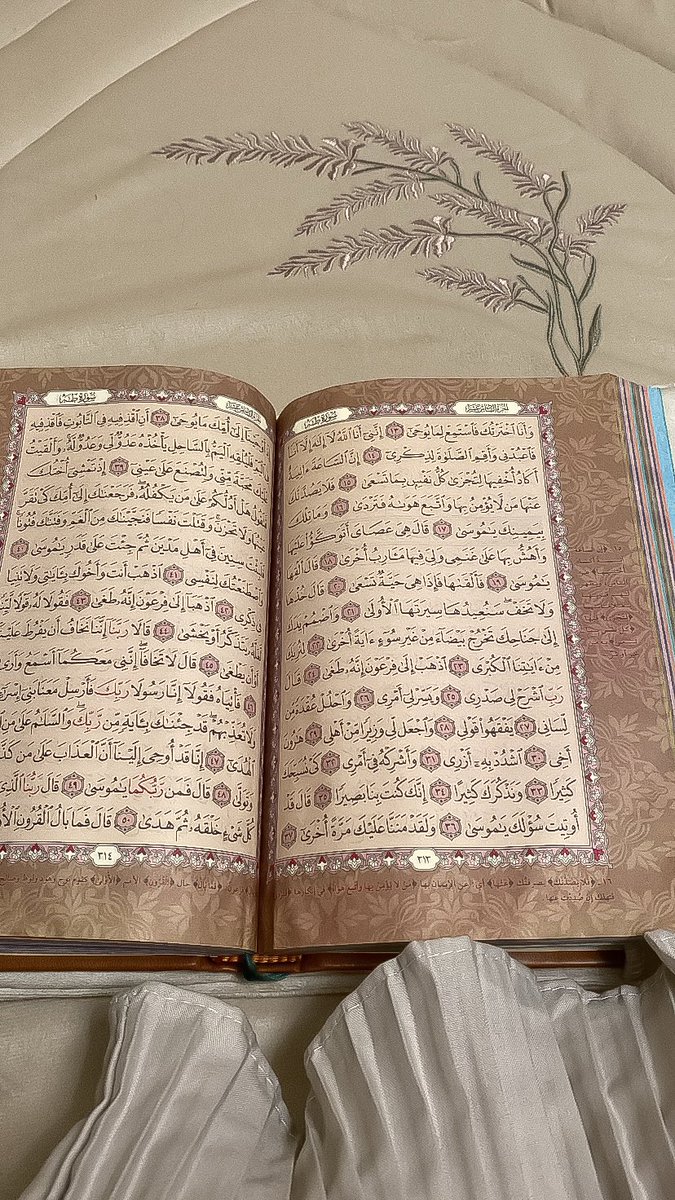 الجزء السادس عشر سورة طه
وَأَنَا ٱخْتَرْتُكَ فَٱسْتَمِعْ لِمَا يُوحَىٰٓ ١٣ إِنَّنِىٓ أَنَا ٱللَّهُ لَآ إِلَٰهَ إِلَّآ أَنَا۠
فَٱعْبُدْنِى وَأَقِمِ ٱلصَّلَوٰةَ لِذِكْرِىٓ ١٤ إِنَّ ٱلسَّاعَةَ ءَاتِيَةٌ
أَكَادُ أُخْفِيهَا لِتُجْزَىٰ كُلُّ نَفْسٍۭ بِمَا تَسْعَىٰ ١٥ فَلَا يَصُدَّنَّكَ
عَنْهَا مَن لَّا يُؤْمِنُ بِهَا وَٱتَّبَعَ هَوَىٰهُ فَتَرْدَىٰ ١٦ وَمَا تِلْكَ
بِيَمِينِكَ يَٰمُوسَىٰ ١٧ قَالَ هِىَ عَصَاىَ أَتَوَكَّؤُا۟ عَلَيْهَا
وَأَهُشُّ بِهَا عَلَىٰ غَنَمِى وَلِىَ فِيهَا مَـَٔارِبُ أُخْرَىٰ ١٨ قَالَ أَلْقِهَا
يَٰمُوسَىٰ ١٩ فَأَلْقَىٰهَا فَإِذَا هِىَ حَيَّةٌ تَسْعَىٰ ٢٠ قَالَ خُذْهَا
وَلَا تَخَفْ سَنُعِيدُهَا سِيرَتَهَا ٱلْأُولَىٰ ٢١ وَٱضْمُمْ يَدَكَ
إِلَىٰ جَنَاحِكَ تَخْرُجْ بَيْضَآءَ مِنْ غَيْرِ سُوٓءٍ ءَايَةً أُخْرَىٰ ٢٢ لِنُرِيَكَ
مِنْ ءَايَٰتِنَا ٱلْكُبْرَى ٢٣ ٱذْهَبْ إِلَىٰ فِرْعَوْنَ إِنَّهُۥ طَغَىٰ ٢٤ قَالَ
رَبِّ ٱشْرَحْ لِى صَدْرِى ٢٥ وَيَسِّرْ لِىٓ أَمْرِى ٢٦ وَٱحْلُلْ عُقْدَةً مِّن
لِّسَانِى ٢٧ يَفْقَهُوا۟ قَوْلِى ٢٨ وَٱجْعَل لِّى وَزِيرًا مِّنْ أَهْلِى ٢٩ هَٰرُونَ
أَخِى ٣٠ ٱشْدُدْ بِهِۦٓ أَزْرِى ٣١ وَأَشْرِكْهُ فِىٓ أَمْرِى ٣٢ كَىْ نُسَبِّحَكَ
كَثِيرًا ٣٣ وَنَذْكُرَكَ كَثِيرًا ٣٤ إِنَّكَ كُنتَ بِنَا بَصِيرًا ٣٥ قَالَ قَدْ
أُوتِيتَ سُؤْلَكَ يَٰمُوسَىٰ ٣٦ وَلَقَدْ مَنَنَّا عَلَيْكَ مَرَّةً أُخْرَىٰٓ ٣٧
٣١٣
الجزء السادس عشر سورة طه
أَوْحَيْنَآ إِلَىٰٓ أُمِّكَ مَا يُوحَىٰٓ ٣٨ أَنِ ٱقْذِفِيهِ فِى ٱلتَّابُوتِ فَٱقْذِفِيهِ
فِى ٱلْيَمِّ فَلْيُلْقِهِ ٱلْيَمُّ بِٱلسَّاحِلِ يَأْخُذْهُ عَدُوٌّ لِّى وَعَدُوٌّ لَّهُۥ وَأَلْقَيْتُ
عَلَيْكَ مَحَبَّةً مِّنِّى وَلِتُصْنَعَ عَلَىٰ عَيْنِىٓ ٣٩ إِذْ تَمْشِىٓ أُخْتُكَ
فَتَقُولُ هَلْ أَدُلُّكُمْ عَلَىٰ مَن يَكْفُلُهُۥ فَرَجَعْنَٰكَ إِلَىٰٓ أُمِّكَ كَىْ تَقَرَّ
عَيْنُهَا وَلَا تَحْزَنَ وَقَتَلْتَ نَفْسًا فَنَجَّيْنَٰكَ مِنَ ٱلْغَمِّ وَفَتَنَّٰكَ فُتُونًا
فَلَبِثْتَ سِنِينَ فِىٓ أَهْلِ مَدْيَنَ ثُمَّ جِئْتَ عَلَىٰ قَدَرٍ يَٰمُوسَىٰ ٤٠
وَٱصْطَنَعْتُكَ لِنَفْسِى ٤١ ٱذْهَبْ أَنتَ وَأَخُوكَ بِـَٔايَٰتِى وَلَا تَنِيَا
فِى ذِكْرِى ٤٢ ٱذْهَبَآ إِلَىٰ فِرْعَوْنَ إِنَّهُۥ طَغَىٰ ٤٣ فَقُولَا لَهُۥ قَوْلًا
لَّعَلَّهُۥ يَتَذَكَّرُ أَوْ يَخْشَىٰ ٤٤ قَالَا رَبَّنَآ إِنَّنَا نَخَافُ أَن يَفْرُطَ عَلَيْنَآ
أَوْ أَن يَطْغَىٰ ٤٥ قَالَ لَا تَخَافَآ إِنَّنِى مَعَكُمَآ أَسْمَعُ وَأَرَىٰ
٤٦ فَأْتِيَاهُ فَقُولَآ إِنَّا رَسُولَا رَبِّكَ فَأَرْسِلْ مَعَنَا بَنِىٓ
وَلَا تُعَذِّبْهُمْ قَدْ جِئْنَٰكَ بِـَٔايَةٍ مِّن رَّبِّكَ وَٱلسَّلَٰمُ عَلَىٰ مَنِ
ٱلْهُدَىٰٓ ٤٧ إِنَّا قَدْ أُوحِىَ إِلَيْنَآ أَنَّ ٱلْعَذَابَ عَلَىٰ مَن
وَتَوَلَّىٰ ٤٨ قَالَ فَمَن رَّبُّكُمَا يَٰمُوسَىٰ ٤٩ قَالَ رَبُّنَا ٱلَّذِىٓ
كُلَّ شَىْءٍ خَلْقَهُۥ ثُمَّ هَدَىٰ ٥٠ قَالَ فَمَا بَالُ ٱلْقُرُونِ
٣١٤